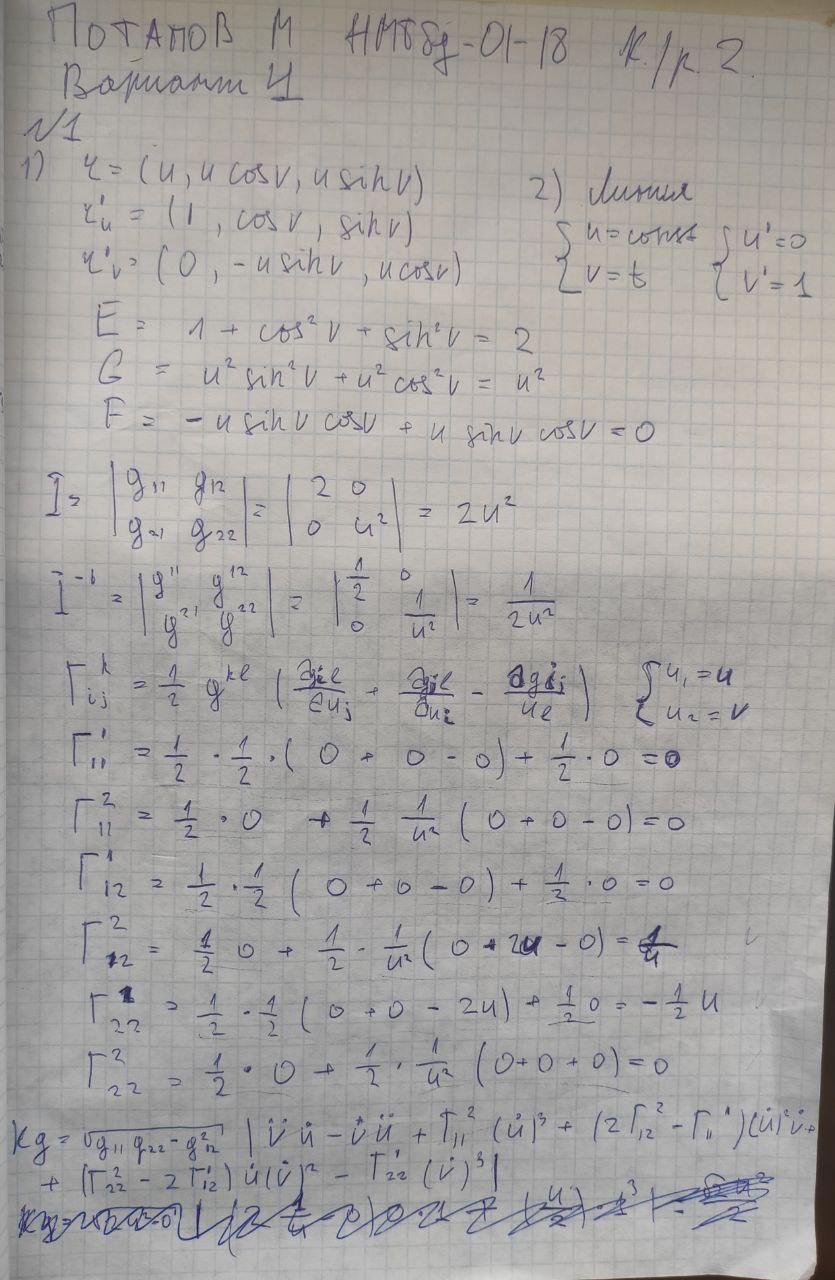 Потапов М НМТбд-01-18 К/р. 2.
Вариант 4
№1
1) r = (u, u cosv, u sinv)
r'u = (1, cosv, sinv)
r'v = (0, -u sinv, u cosv)
2) Линия
{ u = const { u' = 0
{ v = t { v' = 1
E = 1 + cos²v + sin²v = 2
G = u² sin²v + u² cos²v = u²
F = - u sinv cosv + u sinv cosv = 0
I = | g₁₁ g₁₂ | = | 2 0 | = 2u²
| g₂₁ g₂₂ | | 0 u² |
I⁻¹ = | g¹¹ g¹² | = | 1/2 0 | = 1/2u²
| g²¹ g²² | | 0 1/u² |
Γᵢⱼᵏ = 1/2 gᵏˡ ( ∂gᵢₗ/∂uⱼ + ∂gⱼₗ/∂uᵢ - ∂gᵢⱼ/uₗ ) { u₁ = u
{ u₂ = v
Γ₁₁¹ = 1/2 · 1/2 · ( 0 + 0 - 0) + 1/2 · 0 = 0
Γ₁₁² = 1/2 · 0 + 1/2 1/u² ( 0 + 0 - 0) = 0
Γ₁₂¹ = 1/2 · 1/2 ( 0 + 0 - 0) + 1/2 · 0 = 0
Γ₁₂² = 1/2 0 + 1/2 · 1/u² ( 0 + 2u - 0) = 1/u
Γ₂₂¹ = 1/2 · 1/2 ( 0 + 0 - 2u) + 1/2 0 = - 1/2 u
Γ₂₂² = 1/2 · 0 + 1/2 · 1/u² (0 + 0 + 0) = 0
kg = √(g₁₁ g₂₂ - g₁₂²) | v̈ u̇ - v̇ ü + Γ₁₁² (u̇)³ + (2Γ₁₂² - Γ₁₁¹)(u̇)² v̇ +
+ (Γ₂₂² - 2Γ₁₂¹) u̇ (v̇)² - Γ₂₂¹ (v̇)³ |